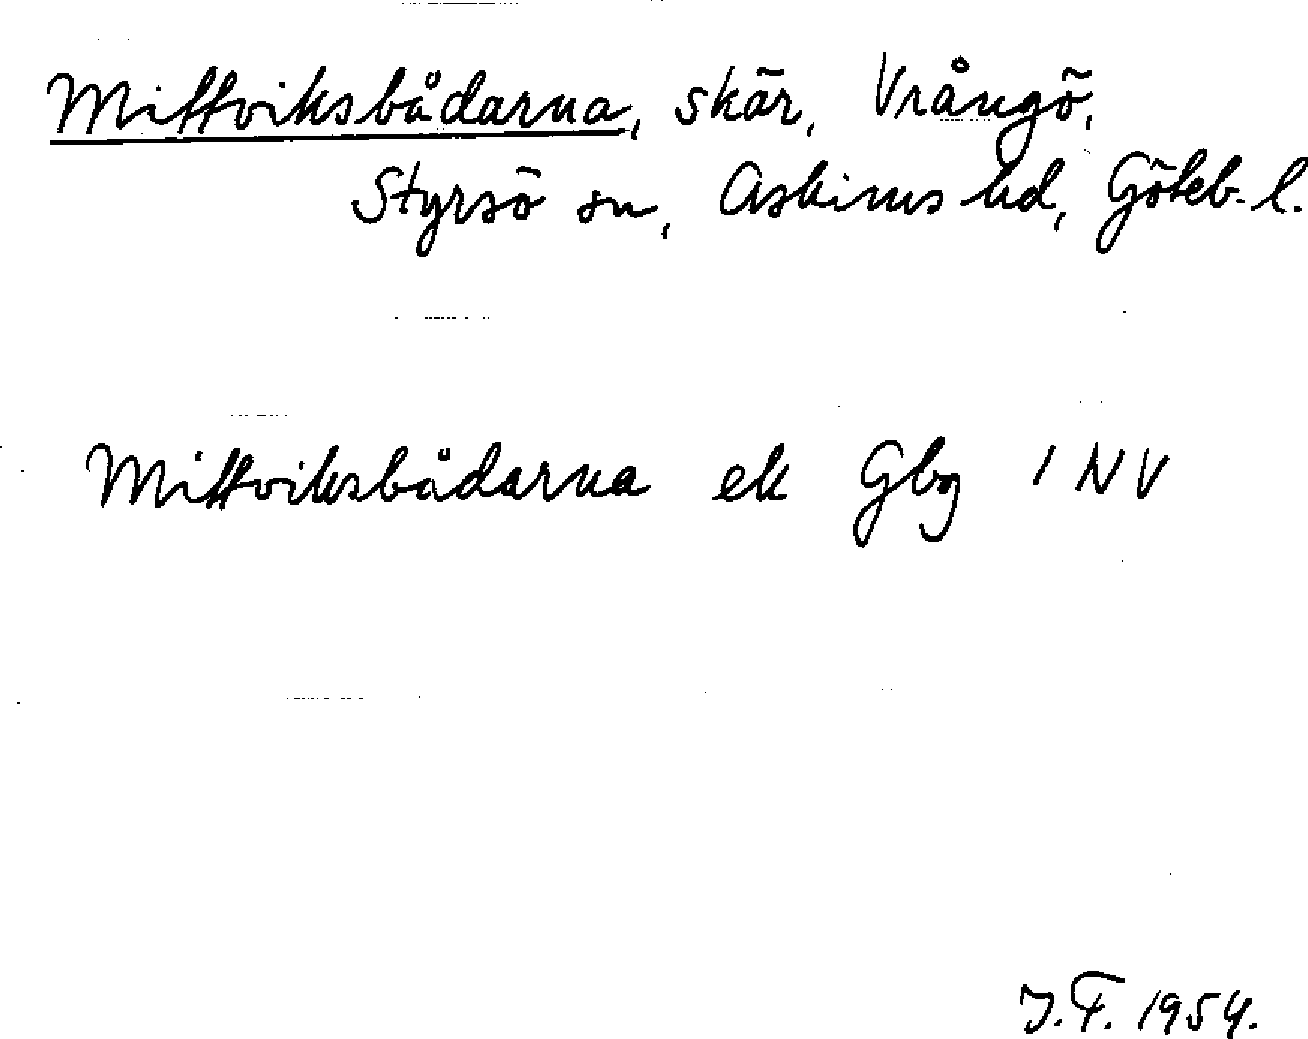 Mittviksbådarna, skär, Vrångö,
Styrsö sn, Askims hd, Göteb. l.
Mittviksbådarna ek Gbg 1 NV
J.F. 1954.